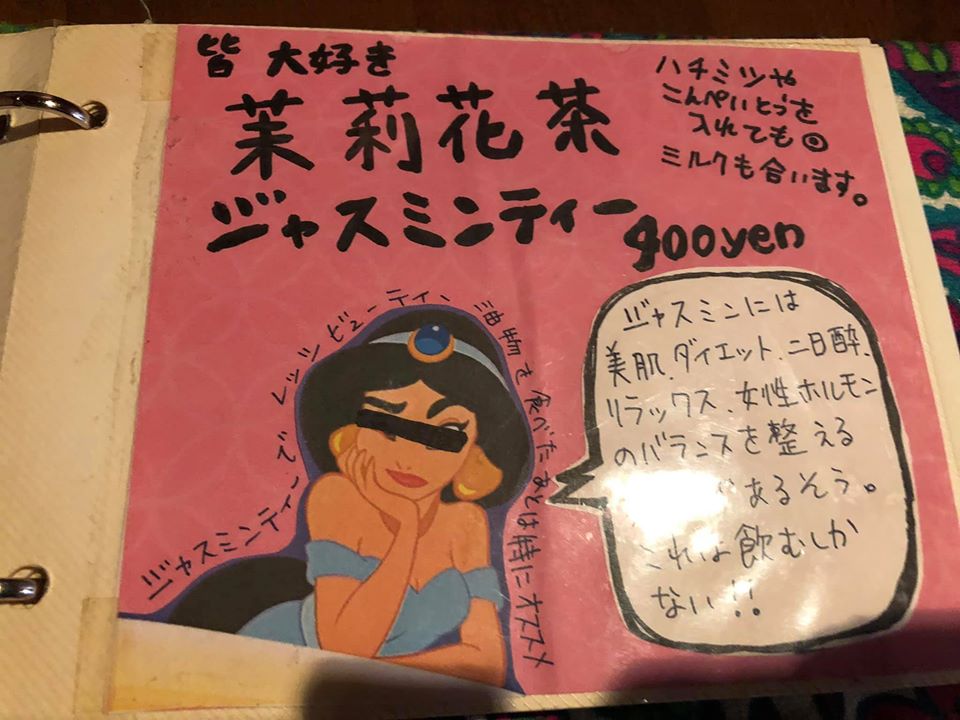 皆 大好き
茉莉花茶
ジャスミンティー
400yen
ハチミツや
こんぺいとうを
入れても◎
ミルクも合います。
ジャスミンティーで レッツビューティー
油物を食べたあとは特にオススメ
ジャスミンには
美肌、ダイエット、二日酔、
リラックス、女性ホルモン
のバランスを整える
あるそう。
これは飲むしか
ない!!